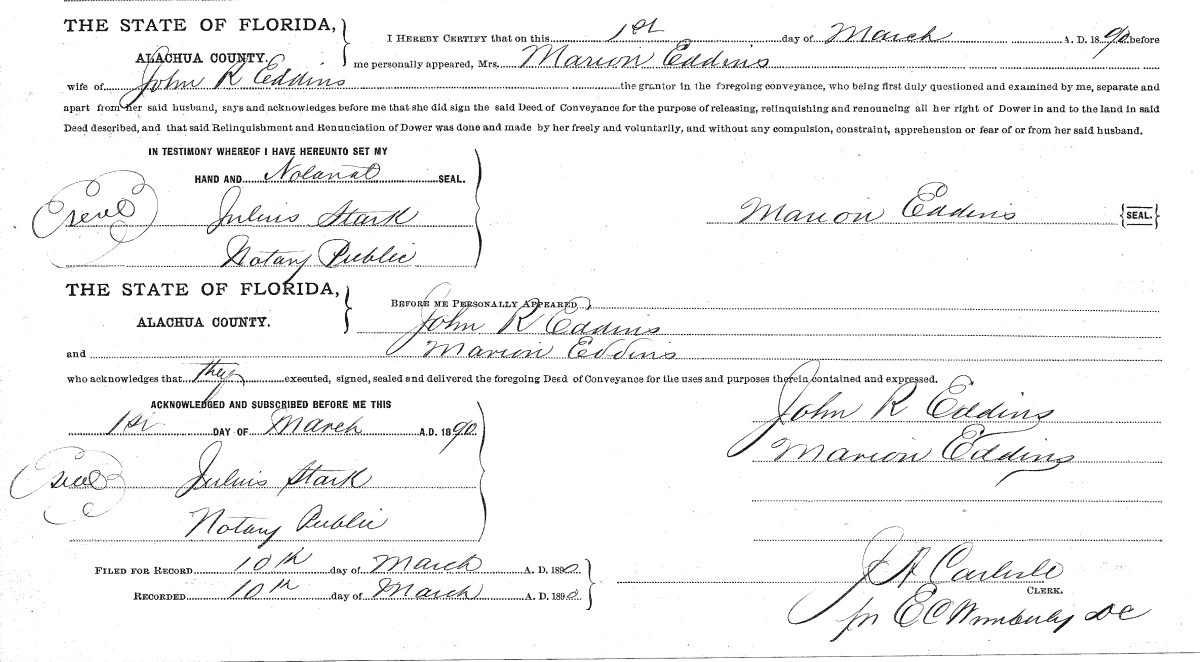 THE STATE OF FLORIDA,
ALACHUA COUNTY.
I HEREBY CERTIFY that on this 1st day of March A. D. 1890 before
me personally appeared, Mrs. Marion Eddins
wife of John R Eddins the grantor in the foregoing conveyance, who being first duly questioned and examined by me, separate and
apart from her said husband, says and acknowledges before me that she did sign the said Deed of Conveyance for the purpose of releasing, relinquishing and renouncing all her right of Dower in and to the land in said
Deed described, and that said Relinquishment and Renunciation of Dower was done and made by her freely and voluntarily, and without any compulsion, constraint, apprehension or fear of or from her said husband.
IN TESTIMONY WHEREOF I HAVE HEREUNTO SET MY
HAND AND Notarial SEAL.
Seal Julius Stark
Marion Eddins {SEAL.}
Notary Public
THE STATE OF FLORIDA,
ALACHUA COUNTY.
BEFORE ME PERSONALLY APPEARED
John R Eddins
and Marion Eddins
who acknowledges that they executed, signed, sealed and delivered the foregoing Deed of Conveyance for the uses and purposes therein contained and expressed.
ACKNOWLEDGED AND SUBSCRIBED BEFORE ME THIS
1st DAY OF March A.D. 1890
John R Eddins
Marion Eddins
Seal Julius Stark
Notary Public
FILED FOR RECORD 10th day of March A. D. 1890
RECORDED 10th day of March A. D. 1890
J A Carlisle
CLERK.
pr E C Wimberly DC